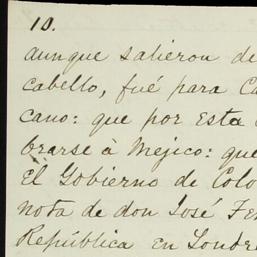 10.
aunque salieron de
cabello, fué para Ca
cano: que por esta
brarse à Mejico: que
El Gobierno de Colo
nota de don José Fer
República en Londre